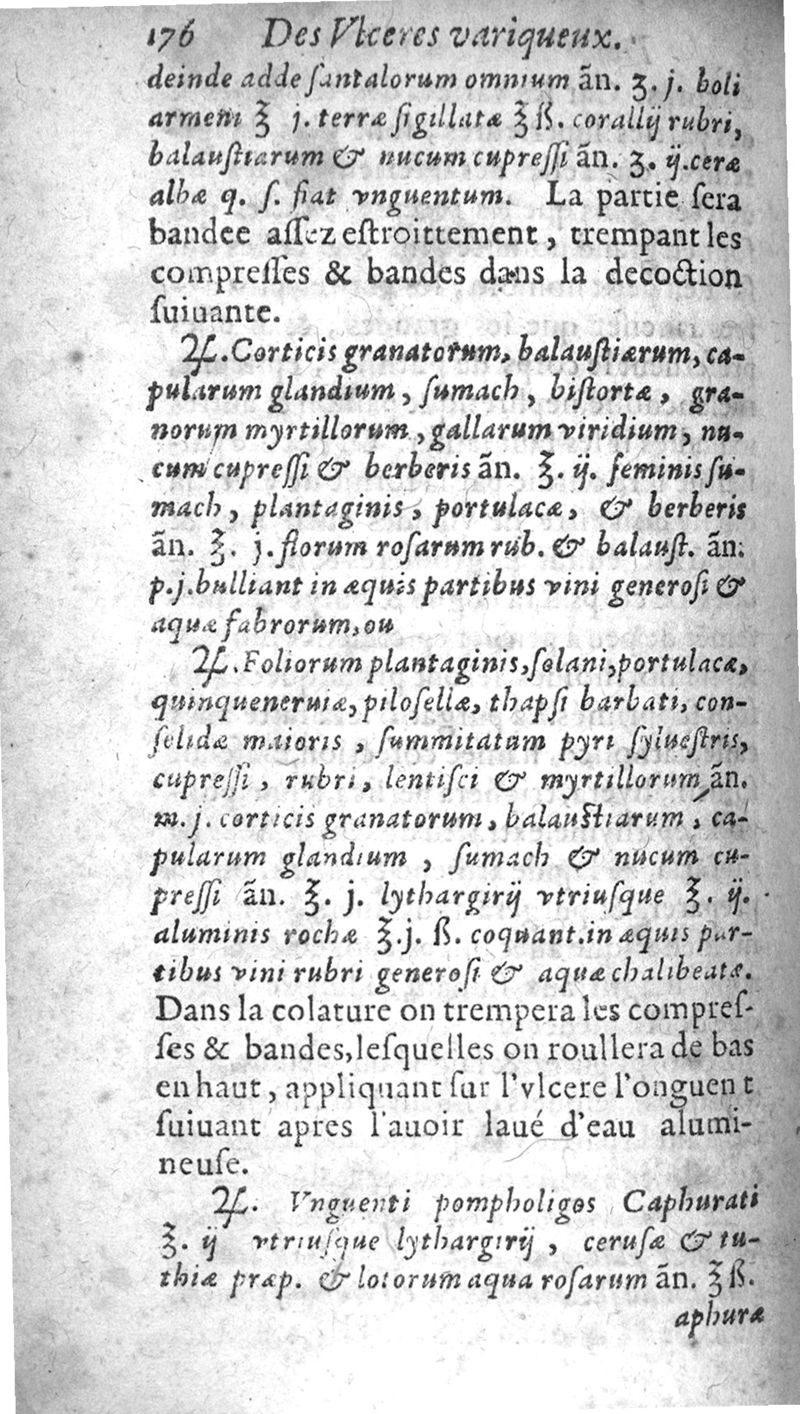 176 Des Vlceres variqueux.
deinde adde ſantalorum omnium ãn. ʒ. j. boli
armeni ℥ j. terræ ſigillatæ ℥ ß. corallij rubri,
balauſtiarum & nucum cupreſſi ãn. ʒ. ij. ceræ
albæ q. ſ. fiat vnguentum. La partie ſera
bandee aſſez eſtroittement, trempant les
compreſſes & bandes dans la decoction
ſuiuante.
℞. Corticis granatorum, balauſtiarum, ca-
pularum glandium, ſumach, biſtortæ, gra-
norum myrtillorum, gallarum viridium, nu-
cum cupreſſi & berberis ãn. ℥. ij. ſeminis ſu-
mach, plantaginis, portulacæ, & berberis
ãn. ℥. j. florum roſarum rub. & balauſt. ãn.
p. j. bulliant in æquis partibus vini generoſi &
aquæ fabrorum, ou
℞. Foliorum plantaginis, ſolani, portulacæ,
quinqueneruiæ, piloſellæ, thapſi barbati, con-
ſelidæ maioris, ſummitatum pyri ſylueſtris,
cupreſſi, rubri, lentiſci & myrtillorum ãn.
m. j. corticis granatorum, balauſtiarum, ca-
pularum glandium, ſumach & nucum cu-
preſſi ãn. ℥. j. lythargirij vtriuſque ℥. ij.
aluminis rochæ ℥. j. ß. coquant. in æquis par-
tibus vini rubri generoſi & aquæ chalibeatæ.
Dans la colature on trempera les compreſ-
ſes & bandes, leſquelles on roullera de bas
en haut, appliquant ſur l'vlcere l'onguent
ſuiuant apres l'auoir laué d'eau alumi-
neuſe.
℞. Vnguenti pompholigos Caphurati
℥. ij vtriuſque lythargirij, ceruſæ & tu-
thiæ præp. & lotorum aqua roſarum ãn. ℥ ß.
aphuræ